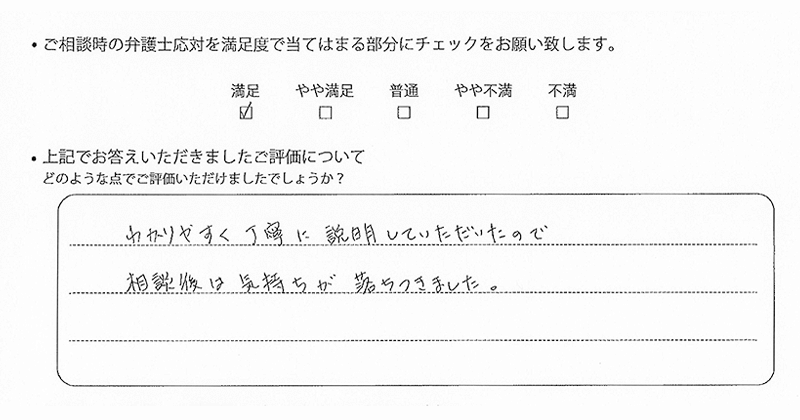 ・ご相談時の弁護士応対を満足度で当てはまる部分にチェックをお願い致します。
満足 やや満足 普通 やや不満 不満
☑ ☐ ☐ ☐ ☐
・上記でお答えいただきましたご評価について
どのような点でご評価いただけましたでしょうか？
わかりやすく丁寧に説明していただいたので
相談後は気持ちが落ちつきました。